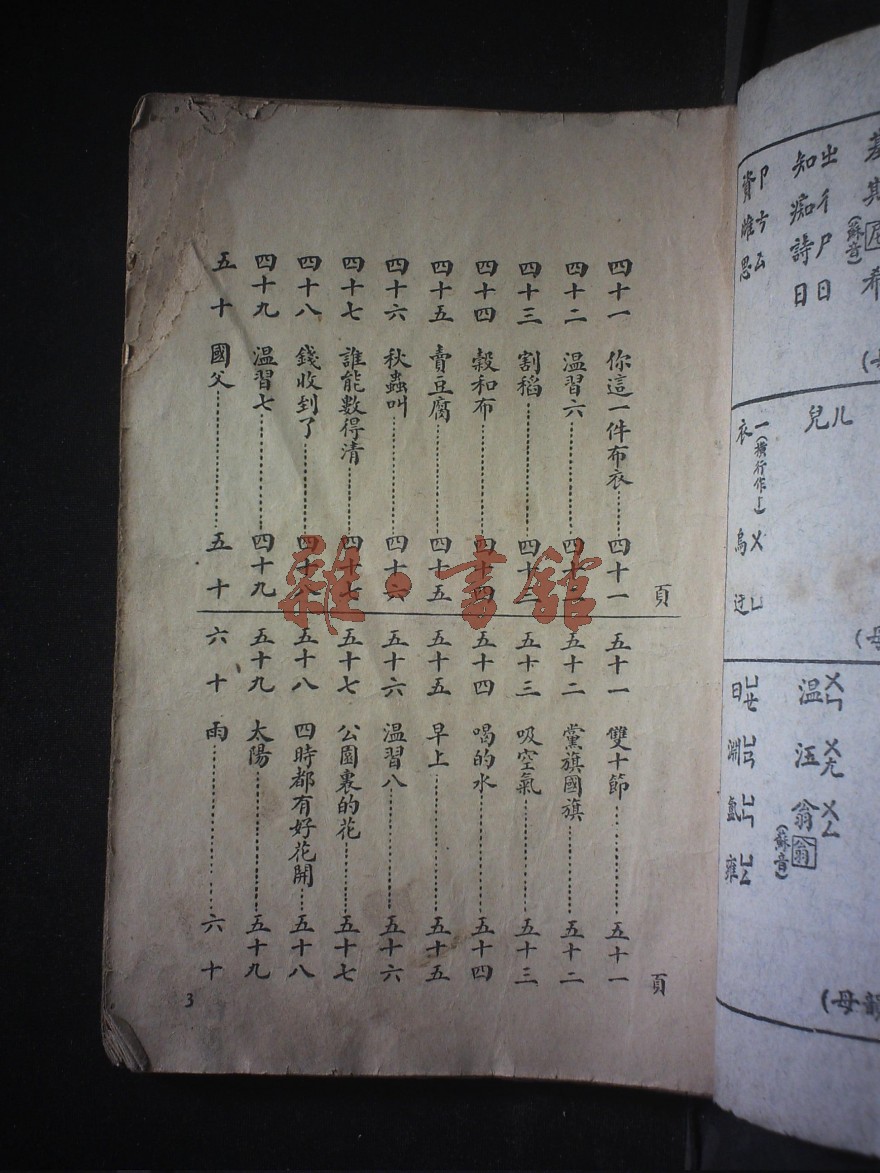 頁
四十一 你這一件布衣……四十一
四十二 温習六……四十二
四十三 割稻……四十三
四十四 穀和布……四十四
四十五 賣豆腐……四十五
四十六 秋蟲叫……四十六
四十七 誰能數得清……四十七
四十八 錢收到了……四十八
四十九 温習七……四十九
五十 國父……五十
頁
五十一 雙十節……五十一
五十二 黨旗國旗……五十二
五十三 吸空氣……五十三
五十四 喝的水……五十四
五十五 早上……五十五
五十六 温習八……五十六
五十七 公園裏的花……五十七
五十八 四時都有好花開……五十八
五十九 太陽……五十九
六十 雨……六十
3
雜·書舘
希
(蘇音)
ㄓㄔㄕㄖ
知痴詩日
ㄗㄘㄙ
資雌思
ㄦ
兒
一(橫行作丨)ㄨㄩ
衣烏迂
ㄨㄣ ㄨㄤ ㄨㄥ
温 汪 翁 翁
(蘇音)
ㄩㄝ ㄩㄢ ㄩㄣ ㄩㄥ
曰 淵 氲 雍
(母韻